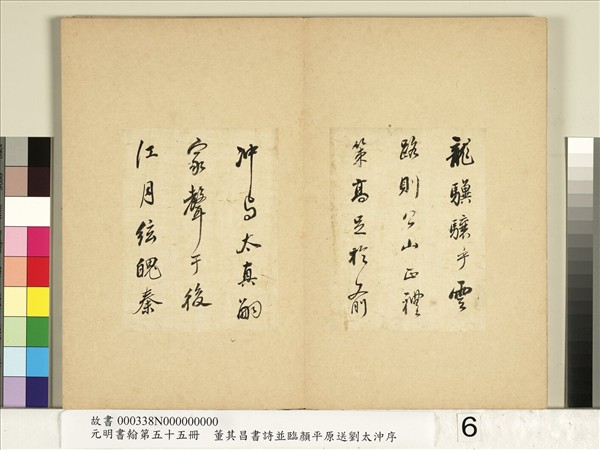 龍驥驤乎雲
路則公山正禮
策高足於前
沖與太真嗣
家聲于後
江月弦魄秦
故書 000338N000000000
元明書翰第五十五冊　董其昌書詩並臨顏平原送劉太沖序
6